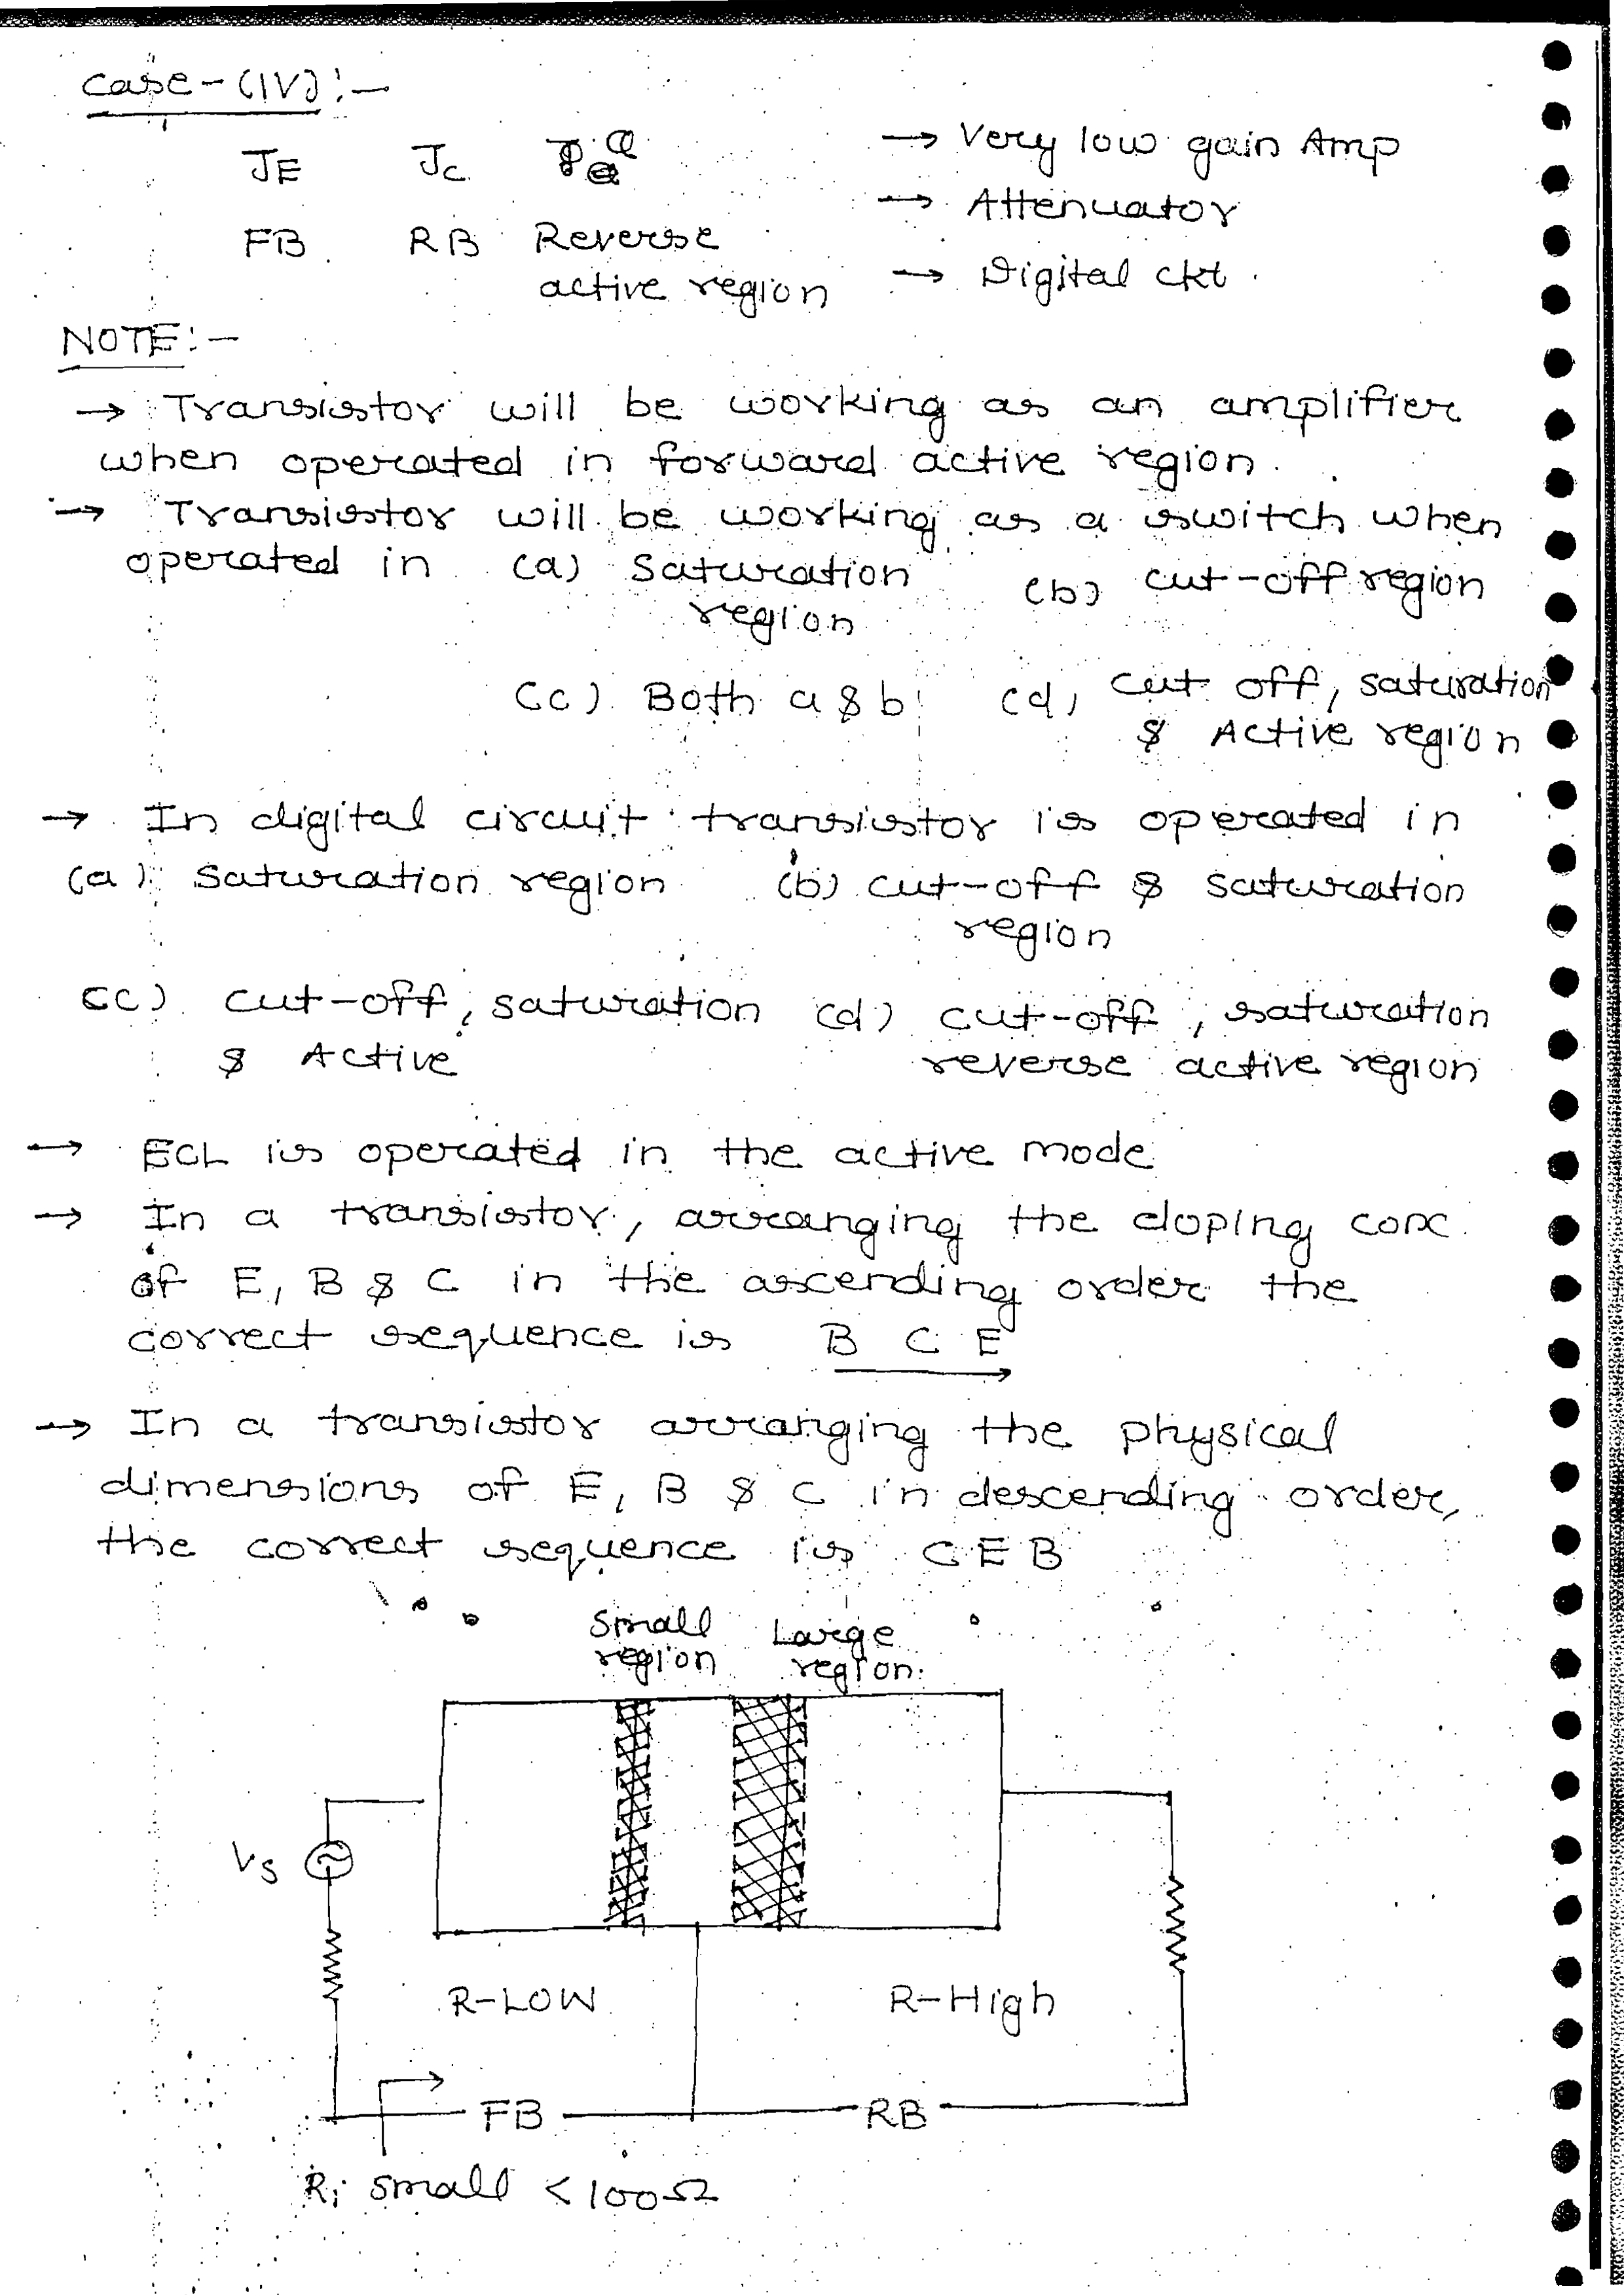 Case-(IV):-
JE JC → Very low gain Amp
→ Attenuator
FB RB Reverse
active region → Digital ckt.
NOTE:-
→ Transistor will be working as an amplifier
when operated in forward active region.
→ Transistor will be working as a switch when
operated in (a) Saturation region (b) cut-off region
(c) Both a & b (d) cut off, saturation
& Active region
→ In digital circuit transistor is operated in
(a) Saturation region (b) cut-off & saturation
region
(c) cut-off, saturation (d) cut-off, saturation
& Active reverse active region
→ ECL is operated in the active mode
→ In a transistor, arranging the doping conc.
of E, B & C in the ascending order the
correct sequence is B C E
→ In a transistor arranging the physical
dimensions of E, B & C in descending order,
the correct sequence is C E B
Small region Large region.
Vs
R-LOW R-High
FB RB
Ri small < 100Ω